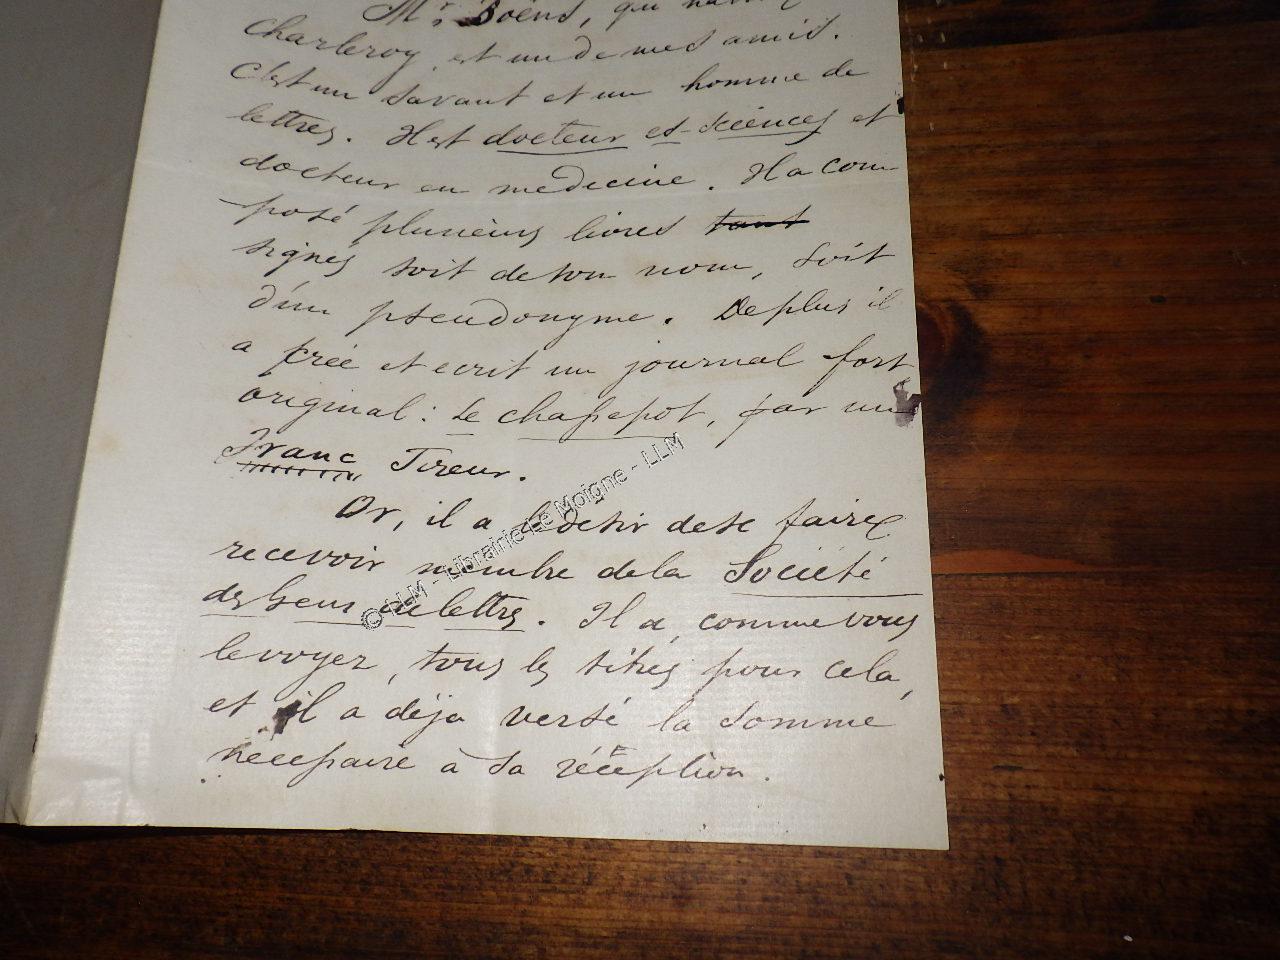 Mr. Boëns, qui
Charleroy, est un de mes amis.
C'est un savant et un homme de
lettres. Il est docteur es-sciences et
docteur en medecine. Il a com-
posé plusieurs livres tant
signés soit de son nom, soit
d'un pseudonyme. De plus il
a créé et ecrit un journal fort
original : Le Chassepot, par un
Franc Tireur.
Or, il a desir de se faire
recevoir membre de la Société
des Gens de lettres. Il a, comme vous
le voyez, tous les titres pour cela,
et il a déja versé la somme
necessaire à sa réception.
© LLM - Librairie Le Moigne - LLM